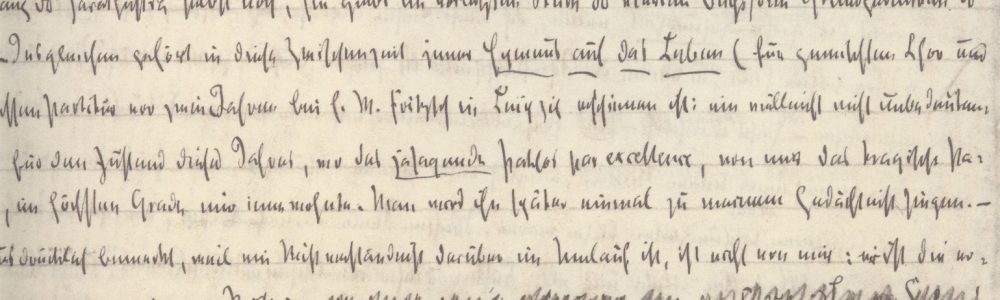 Desgleichen gehört in diese Zwischenzeit jener Hymnus auf das Leben (für gemischten Chor und
Partitur vor zwei Jahren bei E. W. Fritzsch in Leipzig erschienen ist: ein vielleicht nicht unbedeuten-
für den Zustand dieses Jahres, wo das jasagende Pathos par excellence, von mir das tragische Pa-
, im höchsten Grade mir innewohnte. Man wird ihn später einmal zu meinem Gedächtniß singen. —
bemerkt, weil ein Mißverständniß darüber im Umlauf ist, ist nicht von mir: er ist die er-